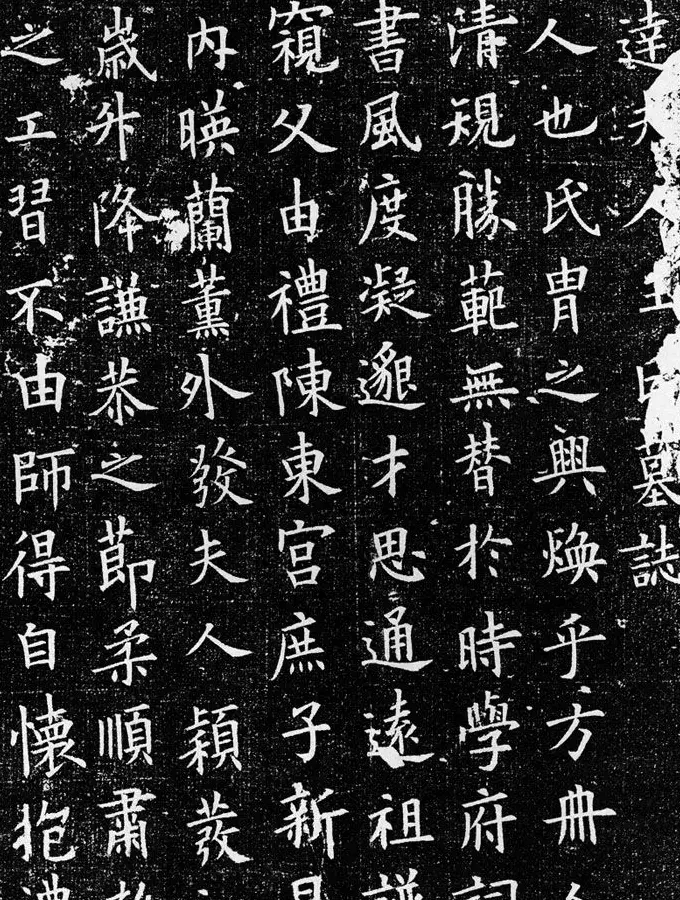 達夫人王墓誌
人也氏胄之興煥乎方冊
清規勝範無替於時學府詞
書風度凝邈才思通遠祖諱
窺父由禮陳東宮庶子新
內暎蘭薰外發夫人穎發
歲升降謙恭之節柔順肅
之工習不由師得自懷抱